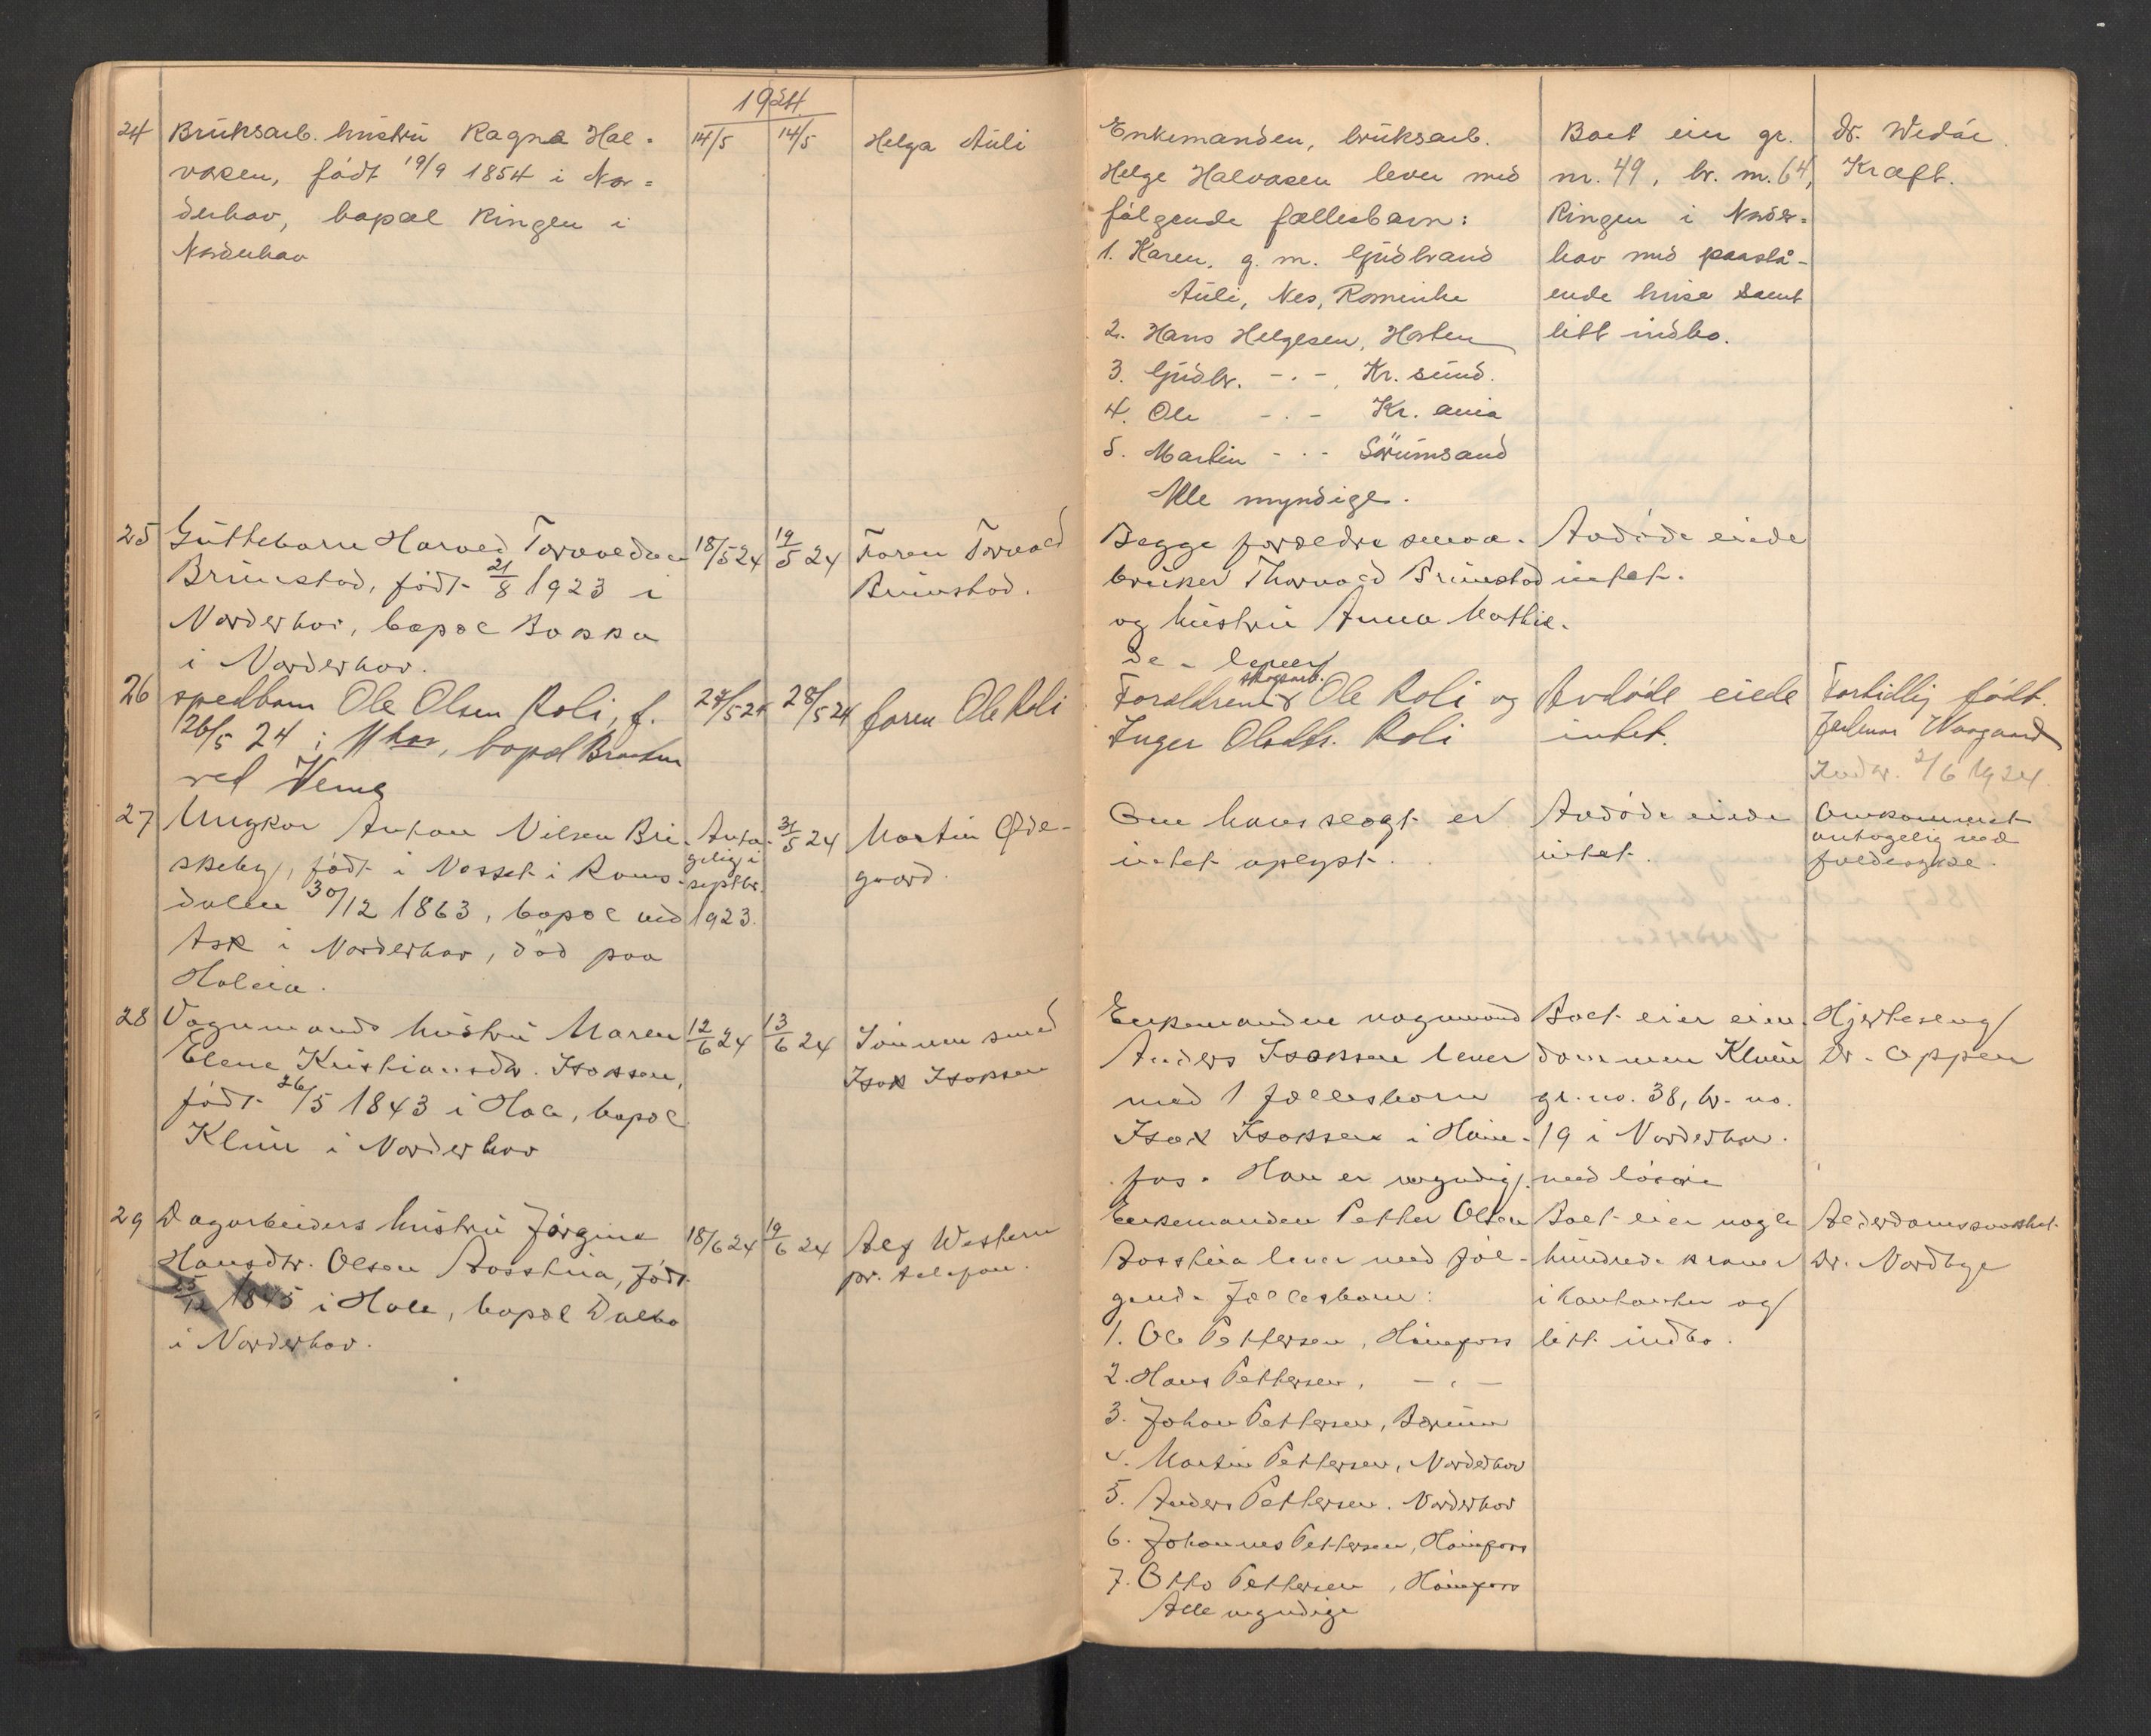 1924
24 Bruksarb. hustru Ragna Hal-
vorsen, født 19/9 1854 i Nor-
derhov, bopæl Ringen i
Norderhov
14/5
14/5
Helga Auli
Enkemanden, bruksarb.
Helge Halvorsen lever med
følgende fællesbarn:
1. Karen, g. m. Gudbrand
Auli, Nes, Romerike
2. Hans Helgesen, Horten
3. Gudbr. -.- Kr. sund.
4. Ole -.- Kr. ania
5. Martin -.- Sörumsand
Alle myndige.
Boet eier gr.
nr. 49, br. nr. 64,
Ringen i Norder-
hov med paastå-
ende huse samt
litt indbo.
Dr. Widár
Kraft.
25 Guttebarn Harald Torvaldsen
Brunstad, født 21/8 1923 i
Norderhov, bopæl
i Norderhov.
18/5 24
19/5 24
Faren Torvald
Brunstad.
Begge forældre smaa-
bruker Thorvald Brunstad
og hustru Anna Mathil-
de - lever
Avdøde eiede
intet.
26 spedbarn Ole Olsen Roli, f.
26/5 24 i bopæl
ved Veme
27/5 24
28/5 24
faren Ole Roli
Forældrene skogsarb. Ole Roli og
Inger Olsdtr. Roli
Avdøde eiede
intet.
Fortidlig født.
Hjelmar Waagaard
2/6 1924
27 Ungkar Anton Nilsen Bri-
skeby, født i Nesset i Roms-
dalen 30/12 1863, bopæl ved
Ask i Norderhov, död paa
Holeia.
Anta-
gelig i
septbr.
1923.
31/5 24
Martin Øde-
gaard
Om hans slægt er
intet oplyst.
Avdøde eiede
intet.
Omkommet
antagelig ved
faldesyke.
28 Vognmands hustru Maren
Elene Kristiansdtr. Isaksen,
født 26/5 1843 i Hole, bopæl
i Norderhov
12/6 24
13/6 24
Sönnen smed
Isak Isaksen
Enkemanden vognmand
Anders Isaksen lever
med 1 fællesbarn
Isak Isaksen i Höne-
fos. Han er myndig.
Boet eier eien-
dommen
gr. no. 38, br. no.
19 i Norderhov.
med løsøre
Hjerteslag
Dr. Oppen
29 Dagarbeiders hustru Jørgine
Hansdtr. Olsen Aasshia, født
25/12 1845 i Hole, bopæl Dalbo
i Norderhov.
18/6 24
19/6 24
Alf Western
pr. telefon.
Enkemanden Petter Olsen
Aasshia lever med føl-
gende fællesbarn:
1. Ole Pettersen, Hönefoss
2. Hans Pettersen, -.-
3. Johan Pettersen, Bærum
4. Martin Pettersen, Norderhov
5. Anders Pettersen. Norderhov
6. Johannes Pettersen, Hönefoss
7. Otto Pettersen, Hönefoss
Alle myndige
Boet eier nogle
hundrede kroner
i kontanter og
litt indbo.
Alderdomssvakhet
Dr. Nordbye